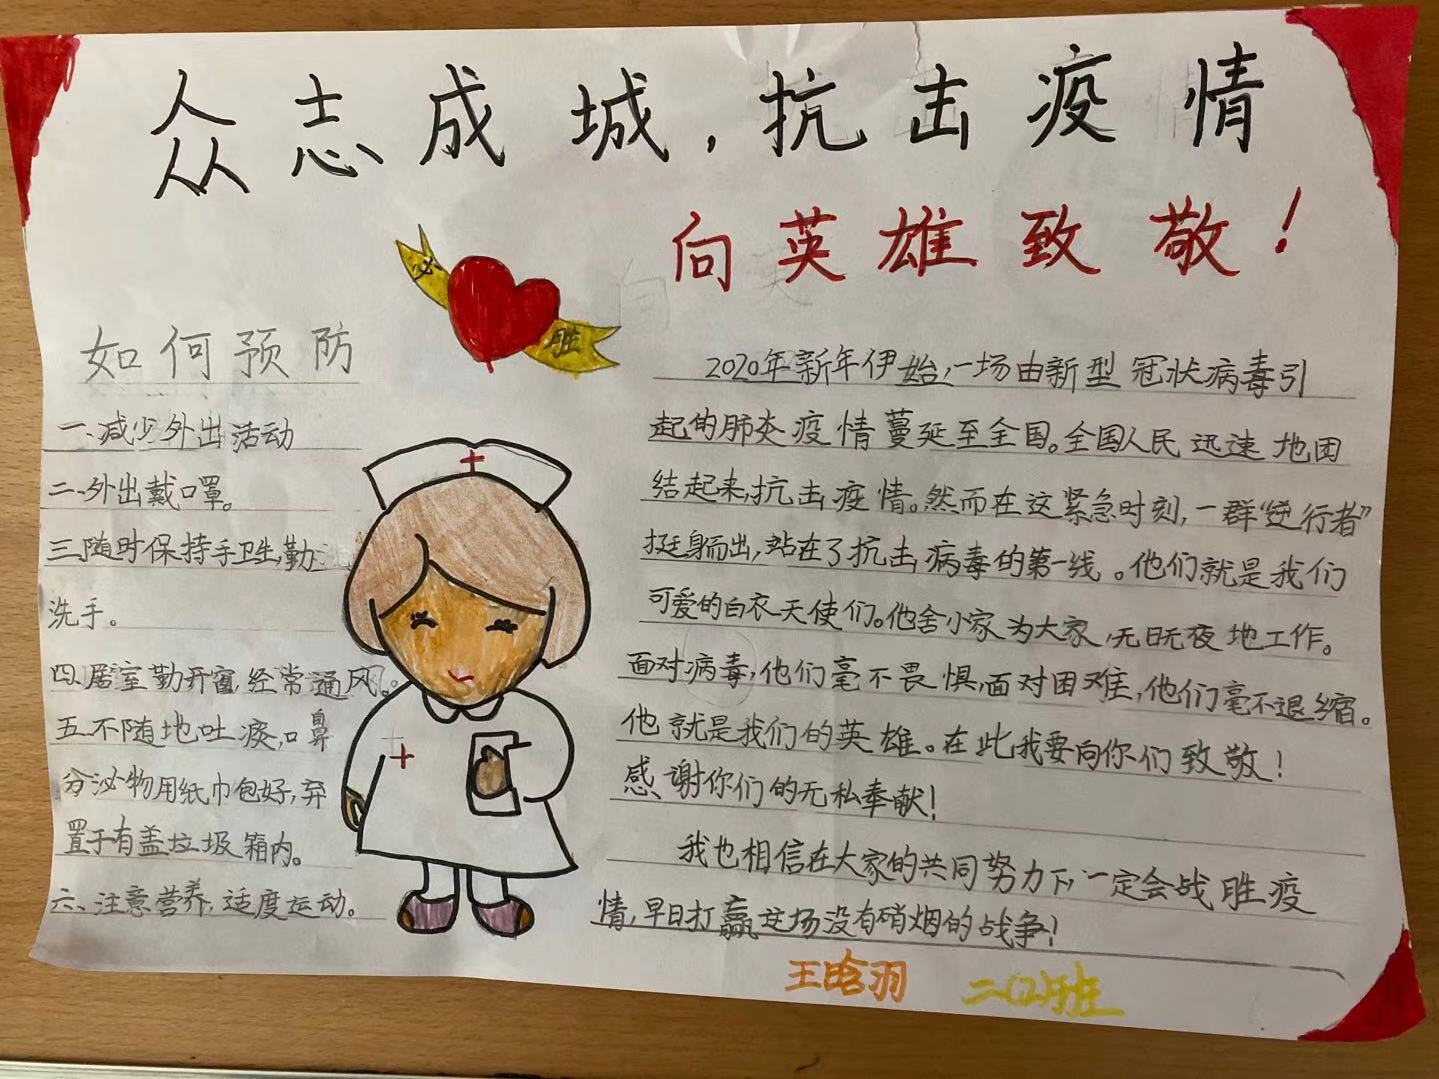 众志成城，抗击疫情
向英雄致敬！
必
胜
如何预防
一、减少外出活动
二、外出戴口罩。
三、随时保持手卫生，勤
洗手。
四、居室勤开窗，经常通风。
五、不随地吐痰，口鼻
分泌物用纸巾包好，弃
置于有盖垃圾箱内。
六、注意营养，适度运动。
2020年新年伊始，一场由新型冠状病毒引
起的肺炎疫情蔓延至全国。全国人民迅速地团
结起来，抗击疫情。然而在这紧急时刻，一群“逆行者”
挺身而出，站在了抗击病毒的第一线。他们就是我们
可爱的白衣天使们。他舍小家为大家，无日无夜地工作。
面对病毒，他们毫不畏惧，面对困难，他们毫不退缩。
他就是我们的英雄。在此我要向你们致敬！
感谢你们的无私奉献！
我也相信在大家的共同努力下，一定会战胜疫
情，早日打赢这场没有硝烟的战争！
王晗羽 二（2）班